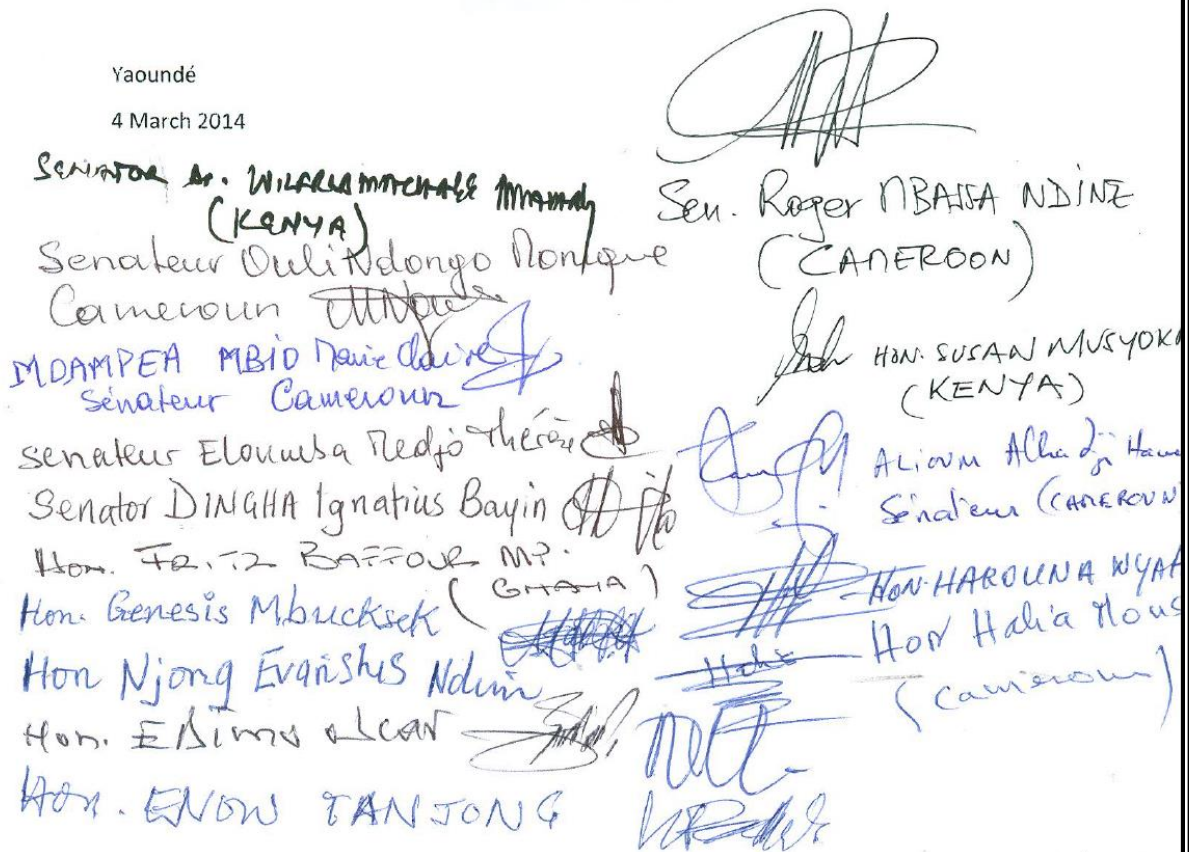 Yaoundé
4 March 2014
SENATOR Dr. WILFRED MACHAGE
(KENYA)
Senateur Ouli Ndongo Monique
Cameroun
MDAMPEA MBIO Marie Claire
Sénateur Cameroun
senateur Eloumba Medjo Thérèse
Senator DINGHA Ignatius Bayin
Hon. FRITZ BAFFOUR MP.
(GHANA)
Hon. Genesis Mbucksek
Hon Njong Evaristus Ndim
Hon. Oscar
Hon. ENOW TANJONG
Sen. Roger MBASSA NDINE
(CAMEROON)
HON. SUSAN MUSYOKA
(KENYA)
ALIOUM Alhadji
Sénateur (CAMEROUN
HON. HAROUNA
Hon Halia
(Cameroun)